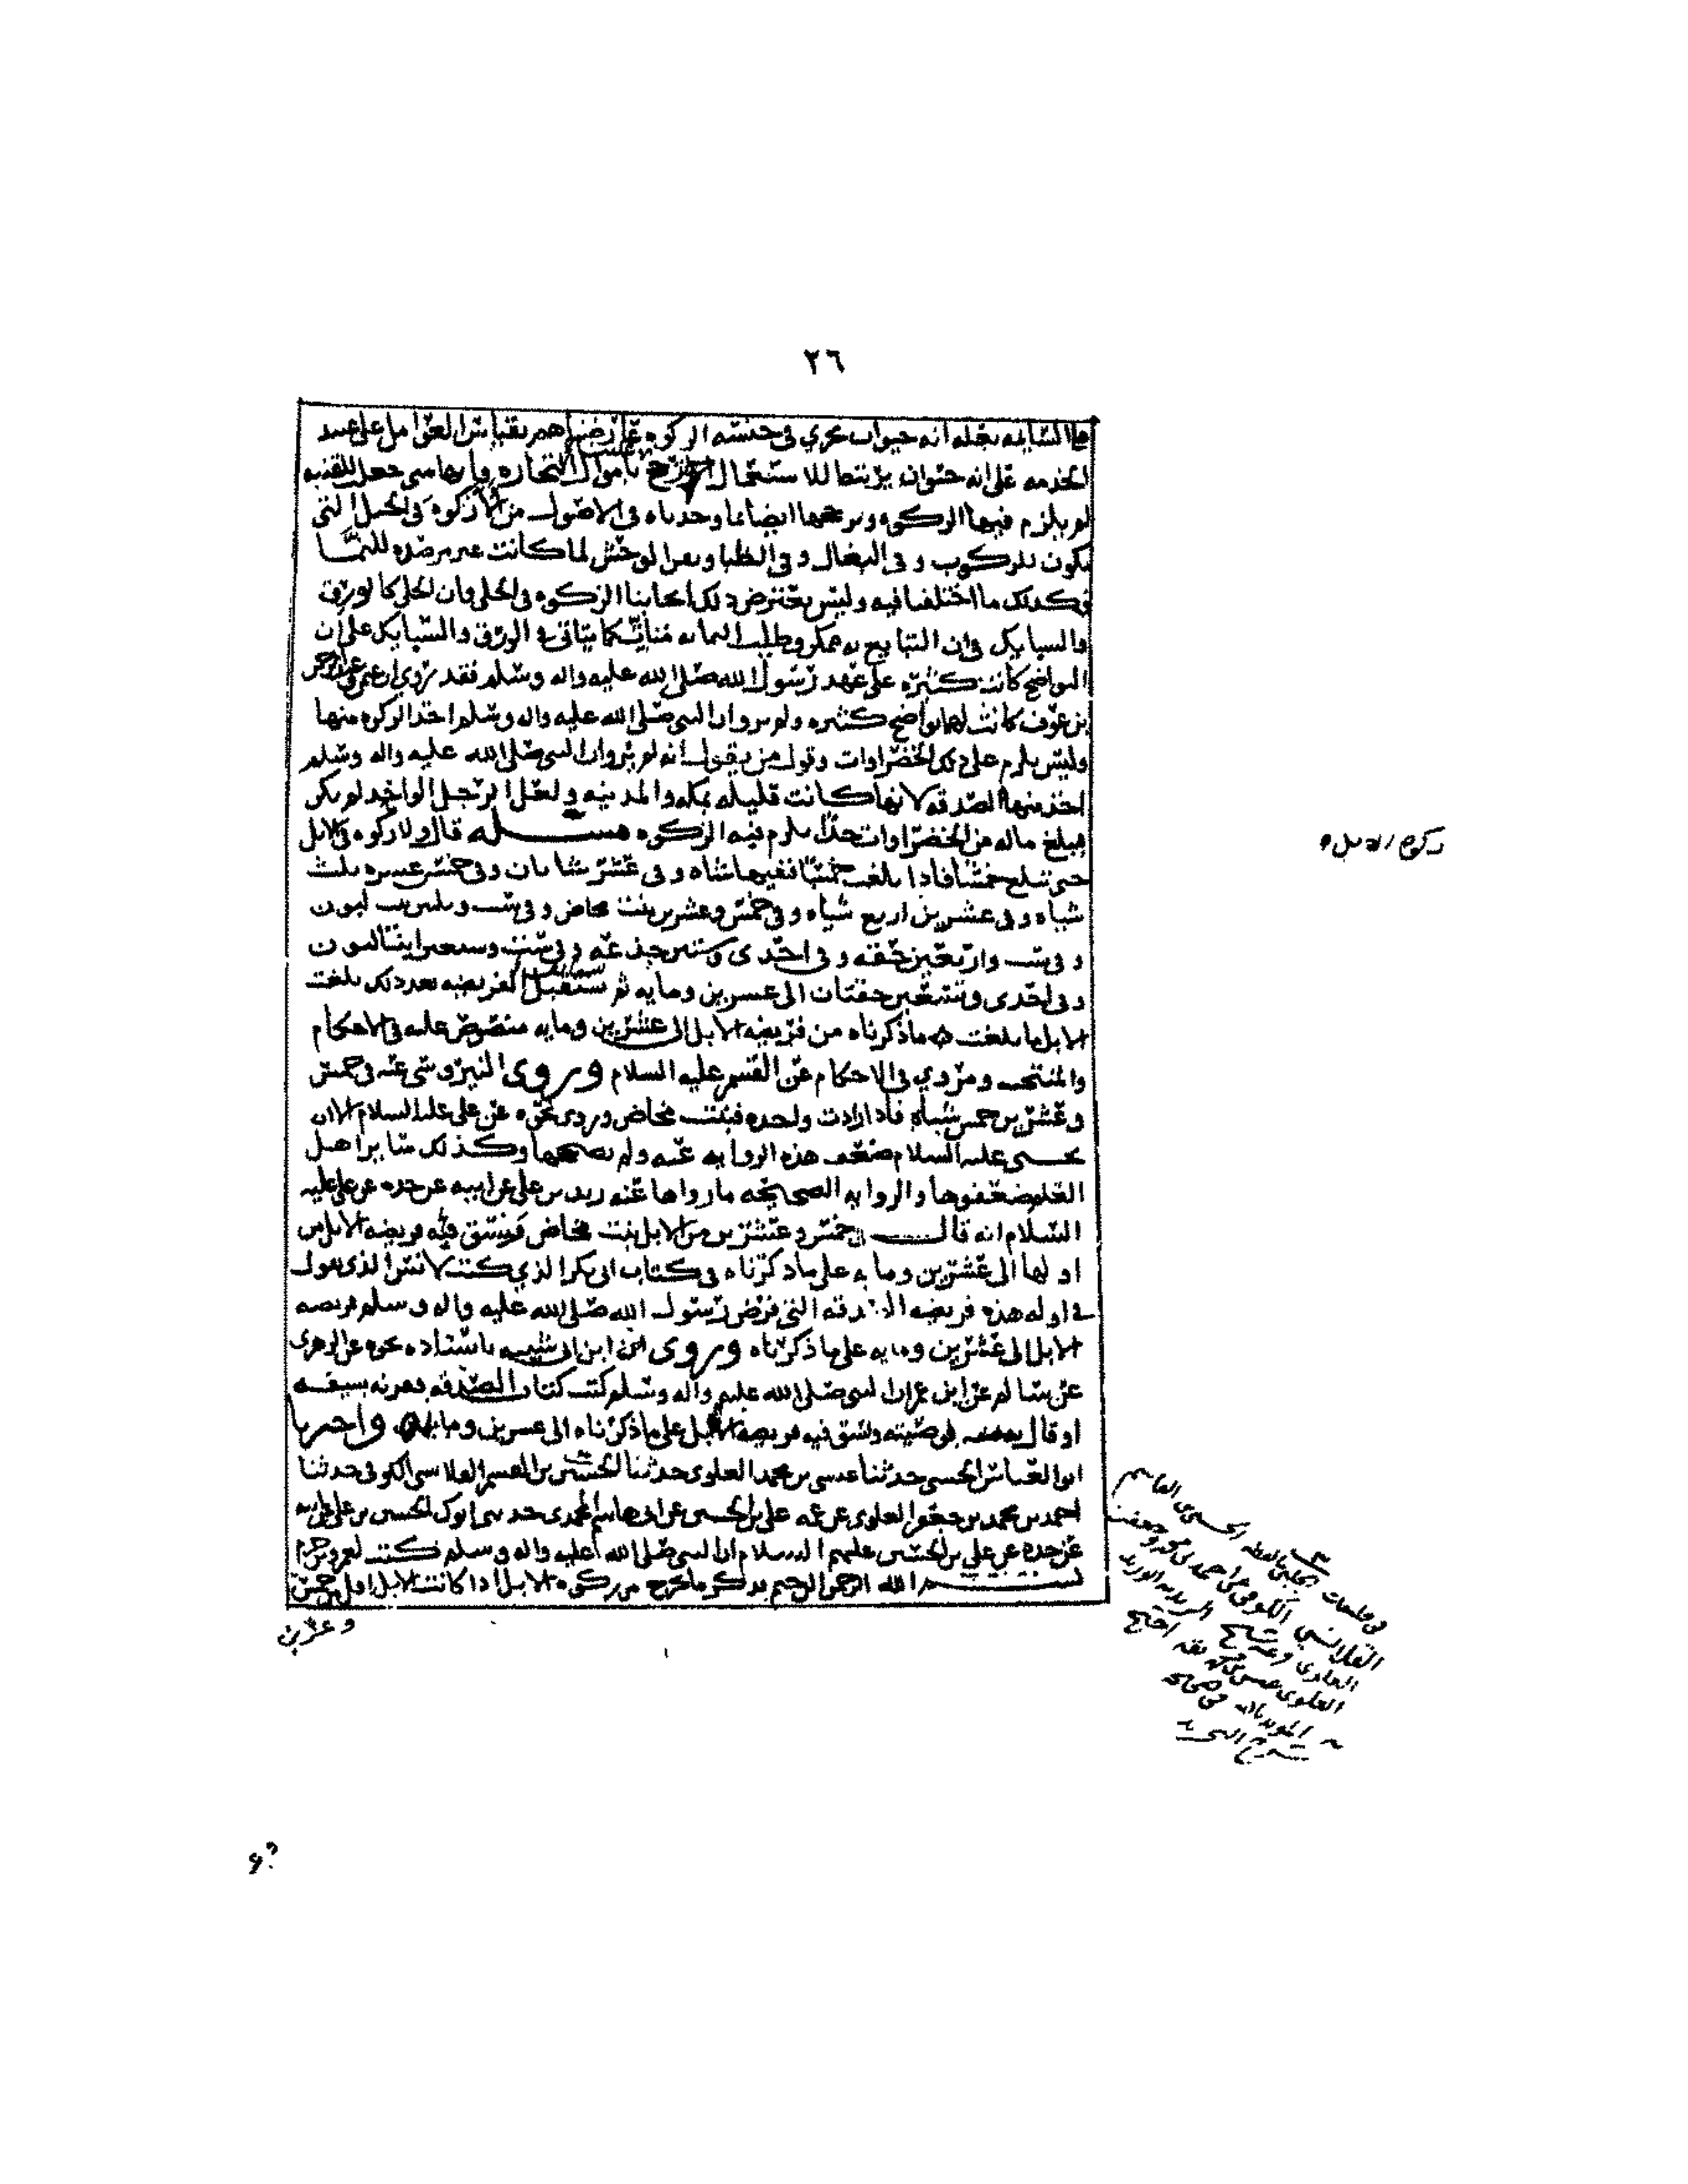 ٢٦
على السايمه بعلة انه حيوان يجري في جنسه الزكوه قياسهم بقياس العوامل على عبيد
الخدمه على انه حيوان يرتبط للاستعمال باموال التجاره وانها متى جعلت للقنيه
لم يلزم فيها الزكوه ويرجحها ايضا ما وجدناه في الاصول من الا زكوه في الخيل التي
تكون للركوب وفي البغال وفي الظبا وبقر الوحش لما كانت غير مرصده للنما
فكذلك ما اختلفنا فيه وليس يعترض ذلك ايجابنا الزكوه في الحلي فان الحلي كالورق
والسبايك فان التبايع به ممكن وطلب النما به متات كما يتاتى في الورق والسبايك على ان
النواضح كانت كثيره على عهد رسول الله صلى الله عليه واله وسلم فقد روي ان عمر وعبد الرحمن
بن عوف كانت لهما نواضح كثيره ولم يرو ان النبي صلى الله عليه واله وسلم اخذ الزكوه منها
وليس يلزم على ذلك الخضراوات وقول من يقول انه لم يرو ان النبي صلى الله عليه واله وسلم
اخذ منها الصدقه لانها كانت قليله بمكه والمدينه ولعل الرجل الواحد لم يكن
يبلغ ماله من الخضراوات حدا يلزم فيه الزكوه مسئله قال ولا زكوه في الابل
حتى تبلغ خمسا فاذا بلغت خمسا ففيها شاه وفي عشر شاتان وفي خمس عشره ثلث
شياه وفي عشرين اربع شياه وفي خمس وعشرين بنت مخاض وفي ست وثلثين بنت لبون
وفي ست واربعين حقه وفي احدى وستين جذعه وفي ست وسبعين ابنتا لبون
وفي احدى وتسعين حقتان الى عشرين ومايه ثم تستقبل الفريضه بعد ذلك بلغت
الابل ما بلغت ما ذكرناه من فريضه الابل الى عشرين ومايه منصوص عليه في الاحكام
والمنتخب ومروي في الاحكام عن القسم عليه السلام وروى النيروسي عنه في خمس
وعشرين خمس شياه فاذا زادت واحده فبنت مخاض وروي نحوه عن علي عليه السلام الا ان
يحيى عليه السلام ضعف هذه الروايه عنه ولم يصححها وكذلك ساير اهل
العلم ضعفوها والروايه الصحيحه ما رواها عنه زيد بن علي عن ابيه عن جده عن علي عليه
السلام انه قال في خمس وعشرين من الابل بنت مخاض ونسق فيه فريضه الابل من
اولها الى عشرين ومايه على ما ذكرناه في كتاب ابي بكر الذي كتبه لانس الذي يقول
في اوله هذه فريضه الصدقه التي فرض رسول الله صلى الله عليه واله وسلم فريضه
الابل الى عشرين ومايه على ما ذكرناه وروى ابن ابي شيبه باسناده نحوه عن الزهري
عن سالم عن ابن عمر ان النبي صلى الله عليه واله وسلم كتب كتاب الصدقه فقرنه بسيفه
او قال بوصيته ونسق فيه فريضه الابل على ما ذكرناه الى عشرين ومايه واخبرنا
ابو العباس الحسني حدثنا عيسى بن محمد العلوي حدثنا الحسين بن القسم القلانسي الكوفي حدثنا
احمد بن محمد بن جعفر العلوي عن عمه علي بن الحسين عن ابي هاشم المحمدي حدثني ابوك الحسين بن علي عن ابيه
عن جده عن علي بن الحسين عليهم السلام ان النبي صلى الله عليه واله وسلم كتب لعمرو بن حزم
بسم الله الرحمن الرحيم بذكر ما يخرج من زكوه الابل اذا كانت الابل اقل من خمس
وعشرين
زكوة الابل
الحسين بن القاسم
القلانسي الكوفي عن احمد بن محمد بن جعفر
العلوي
المؤيد بالله
شرح التجريد